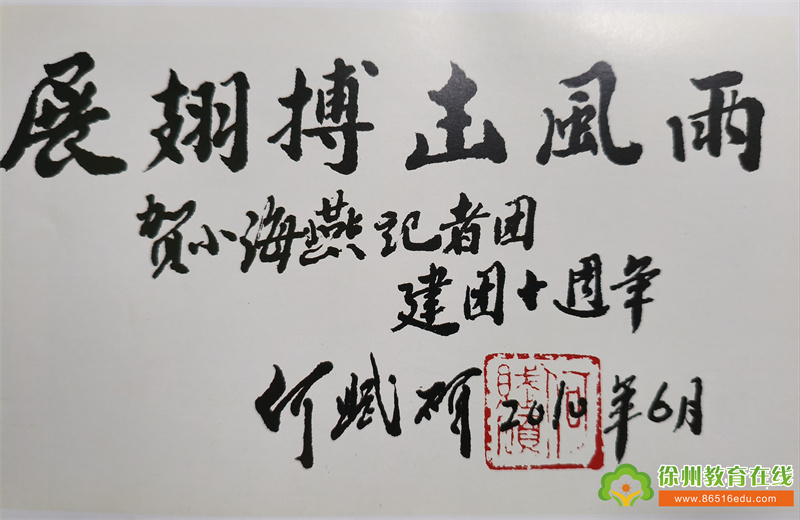 展翅搏击風雨
贺小海燕记者团
建团十週年
何赋硕 2010年6月
徐州教育在线
www.86516edu.com